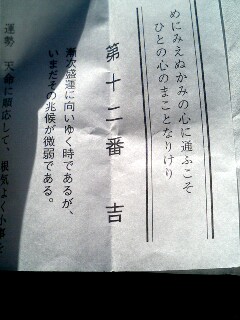 めにみえぬかみの心に通ふこそ
ひとの心のまことなりけり
第十二番 吉
漸次盛運に向いゆく時であるが、
いまだその兆候が微弱である。
運勢 天命に順応して、根気よく小事を